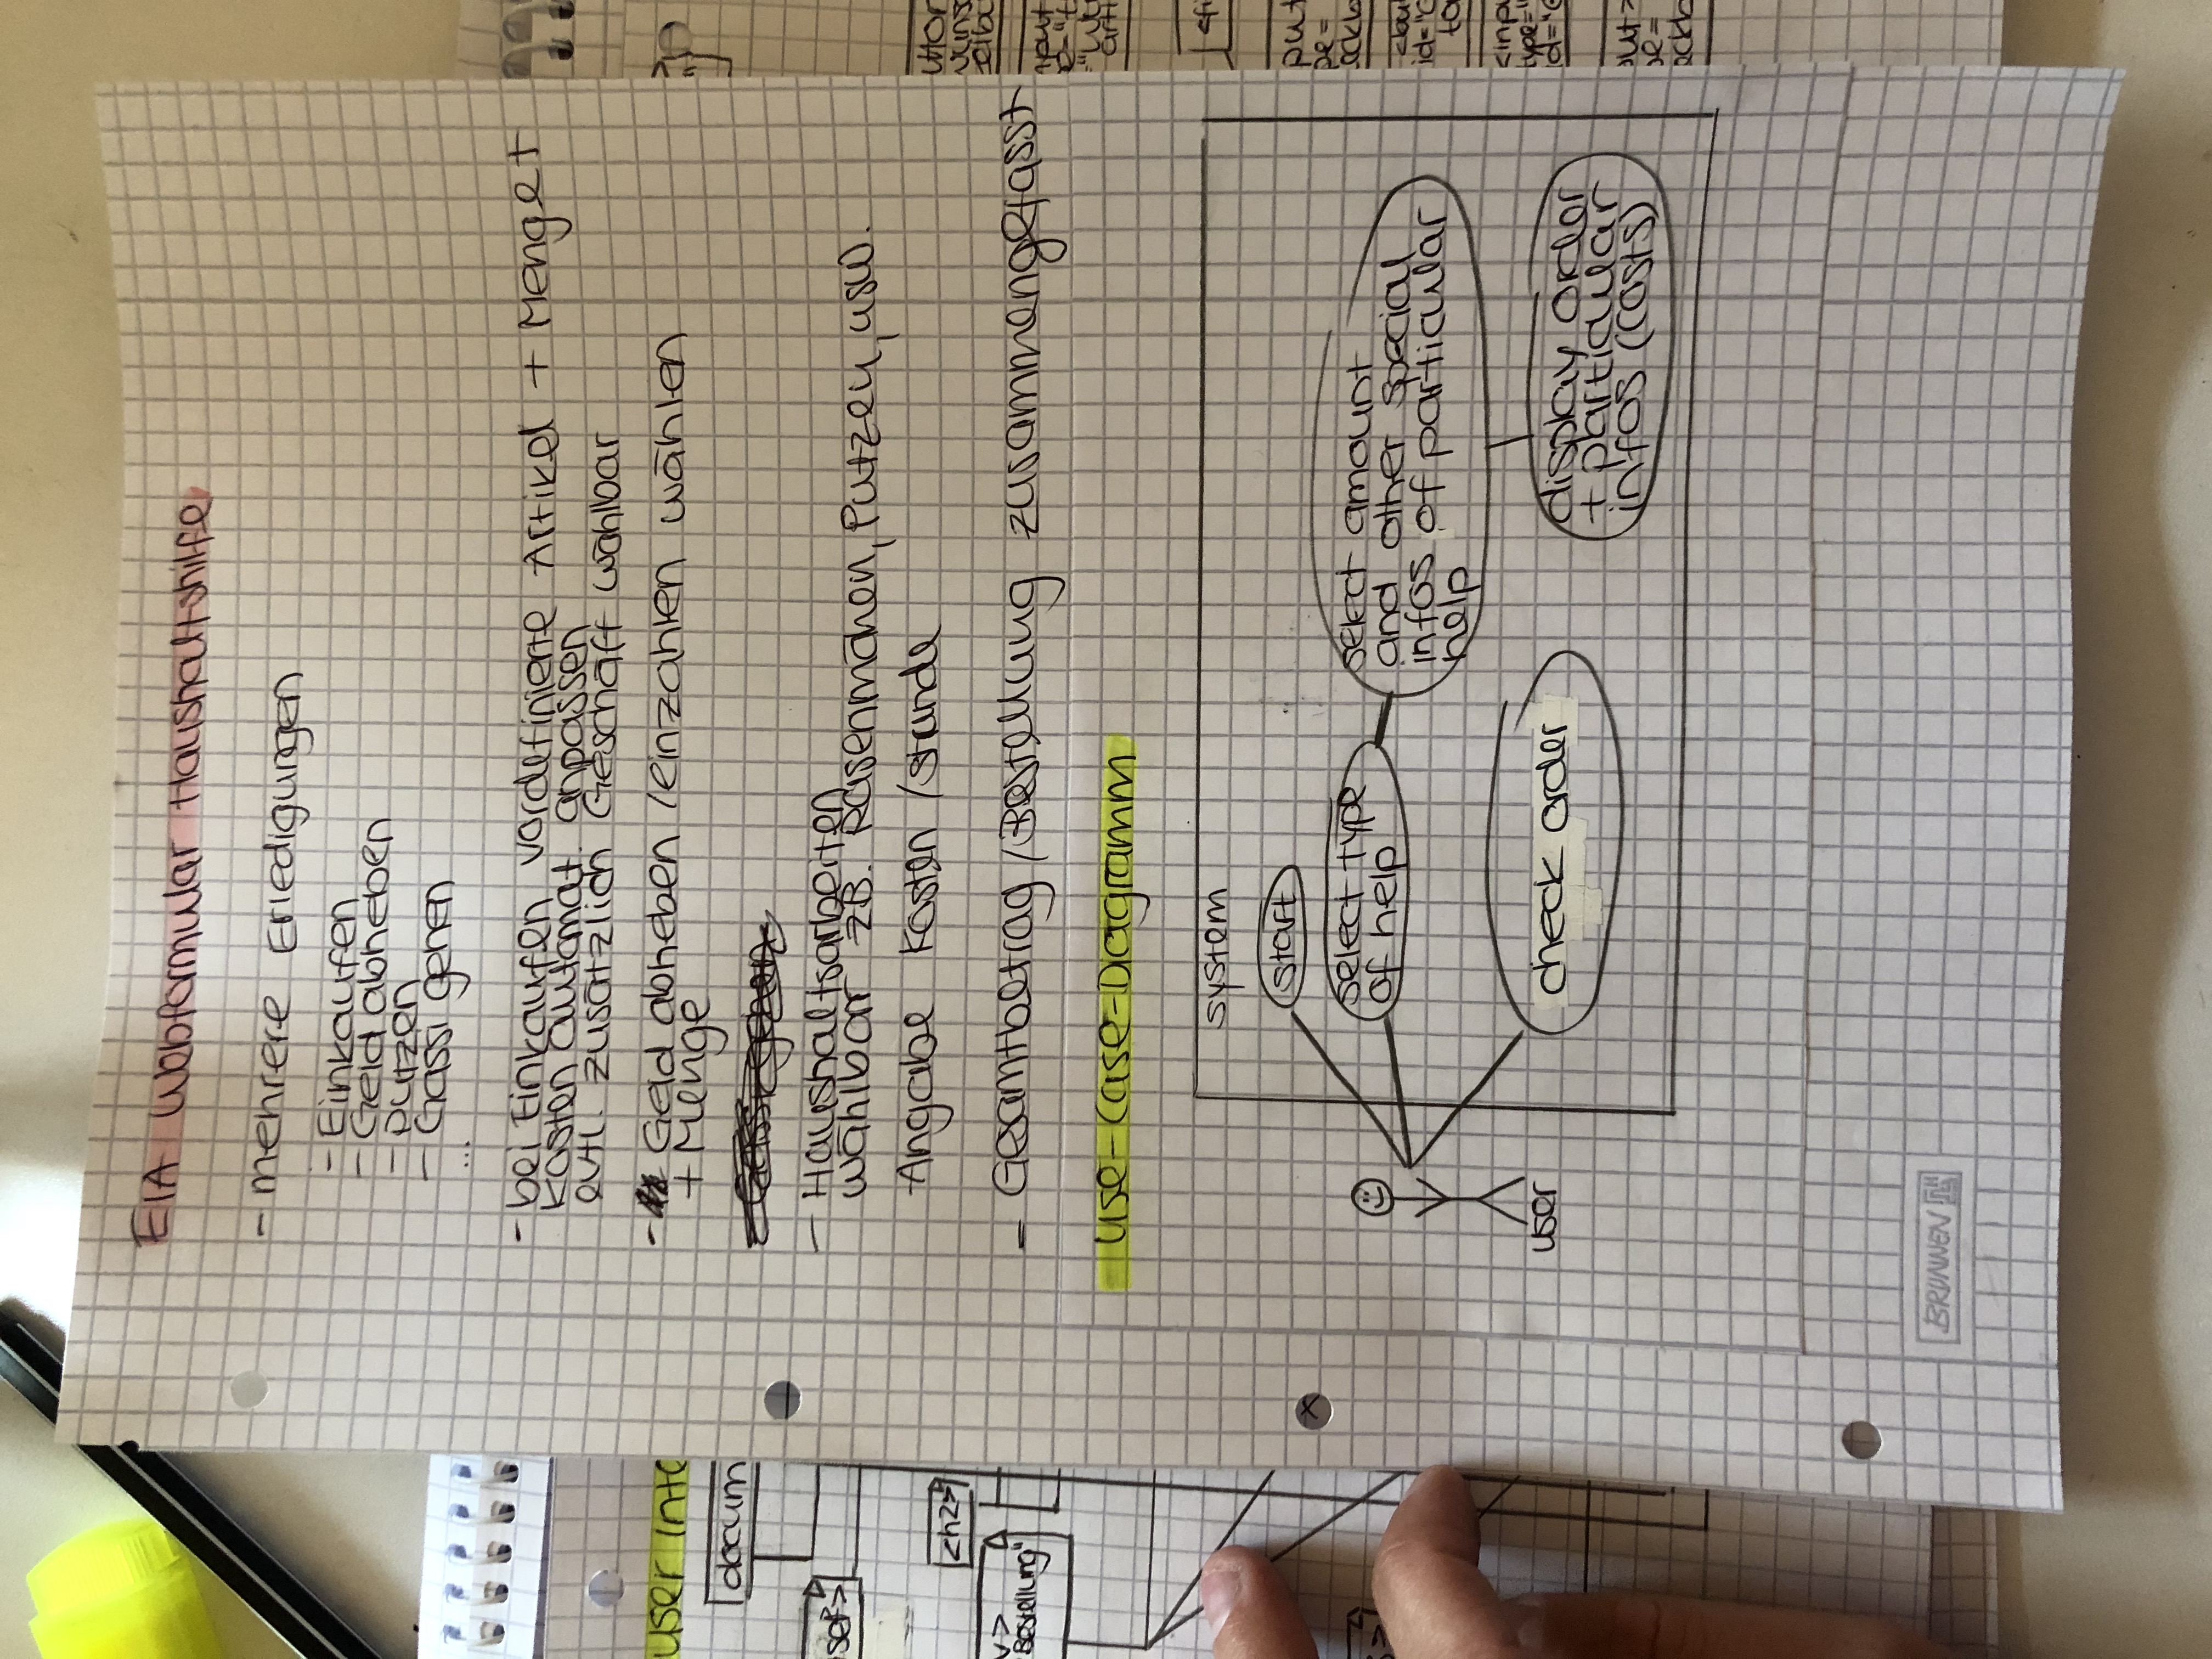 EIA Webformular Haushaltshilfe
- mehrere Erledigungen
- Einkaufen
- Geld abheben
- putzen
- Gassi gehen
...
- bei Einkaufen vordefinierte Artikel + Menge +
Kosten automat. anpassen
evtl. zusätzlich Geschäft wählbar
- Geld abheben /einzahlen wählen
+ Menge
- Haushaltsarbeiten
wählbar zB. Rasenmähen, Putzen, usw.
Angabe Kosten /Stunde
- Gesamtbetrag /Bestellung zusammengefasst
use-case-Diagramm
system
start
select type
of help
select amount
and other special
infos of particular
help
user
check order
display order
+ particular
infos (costs)
BRUNNEN
user inte
docum
<h2>
Bestellung"
id="
<inp
type="
id="